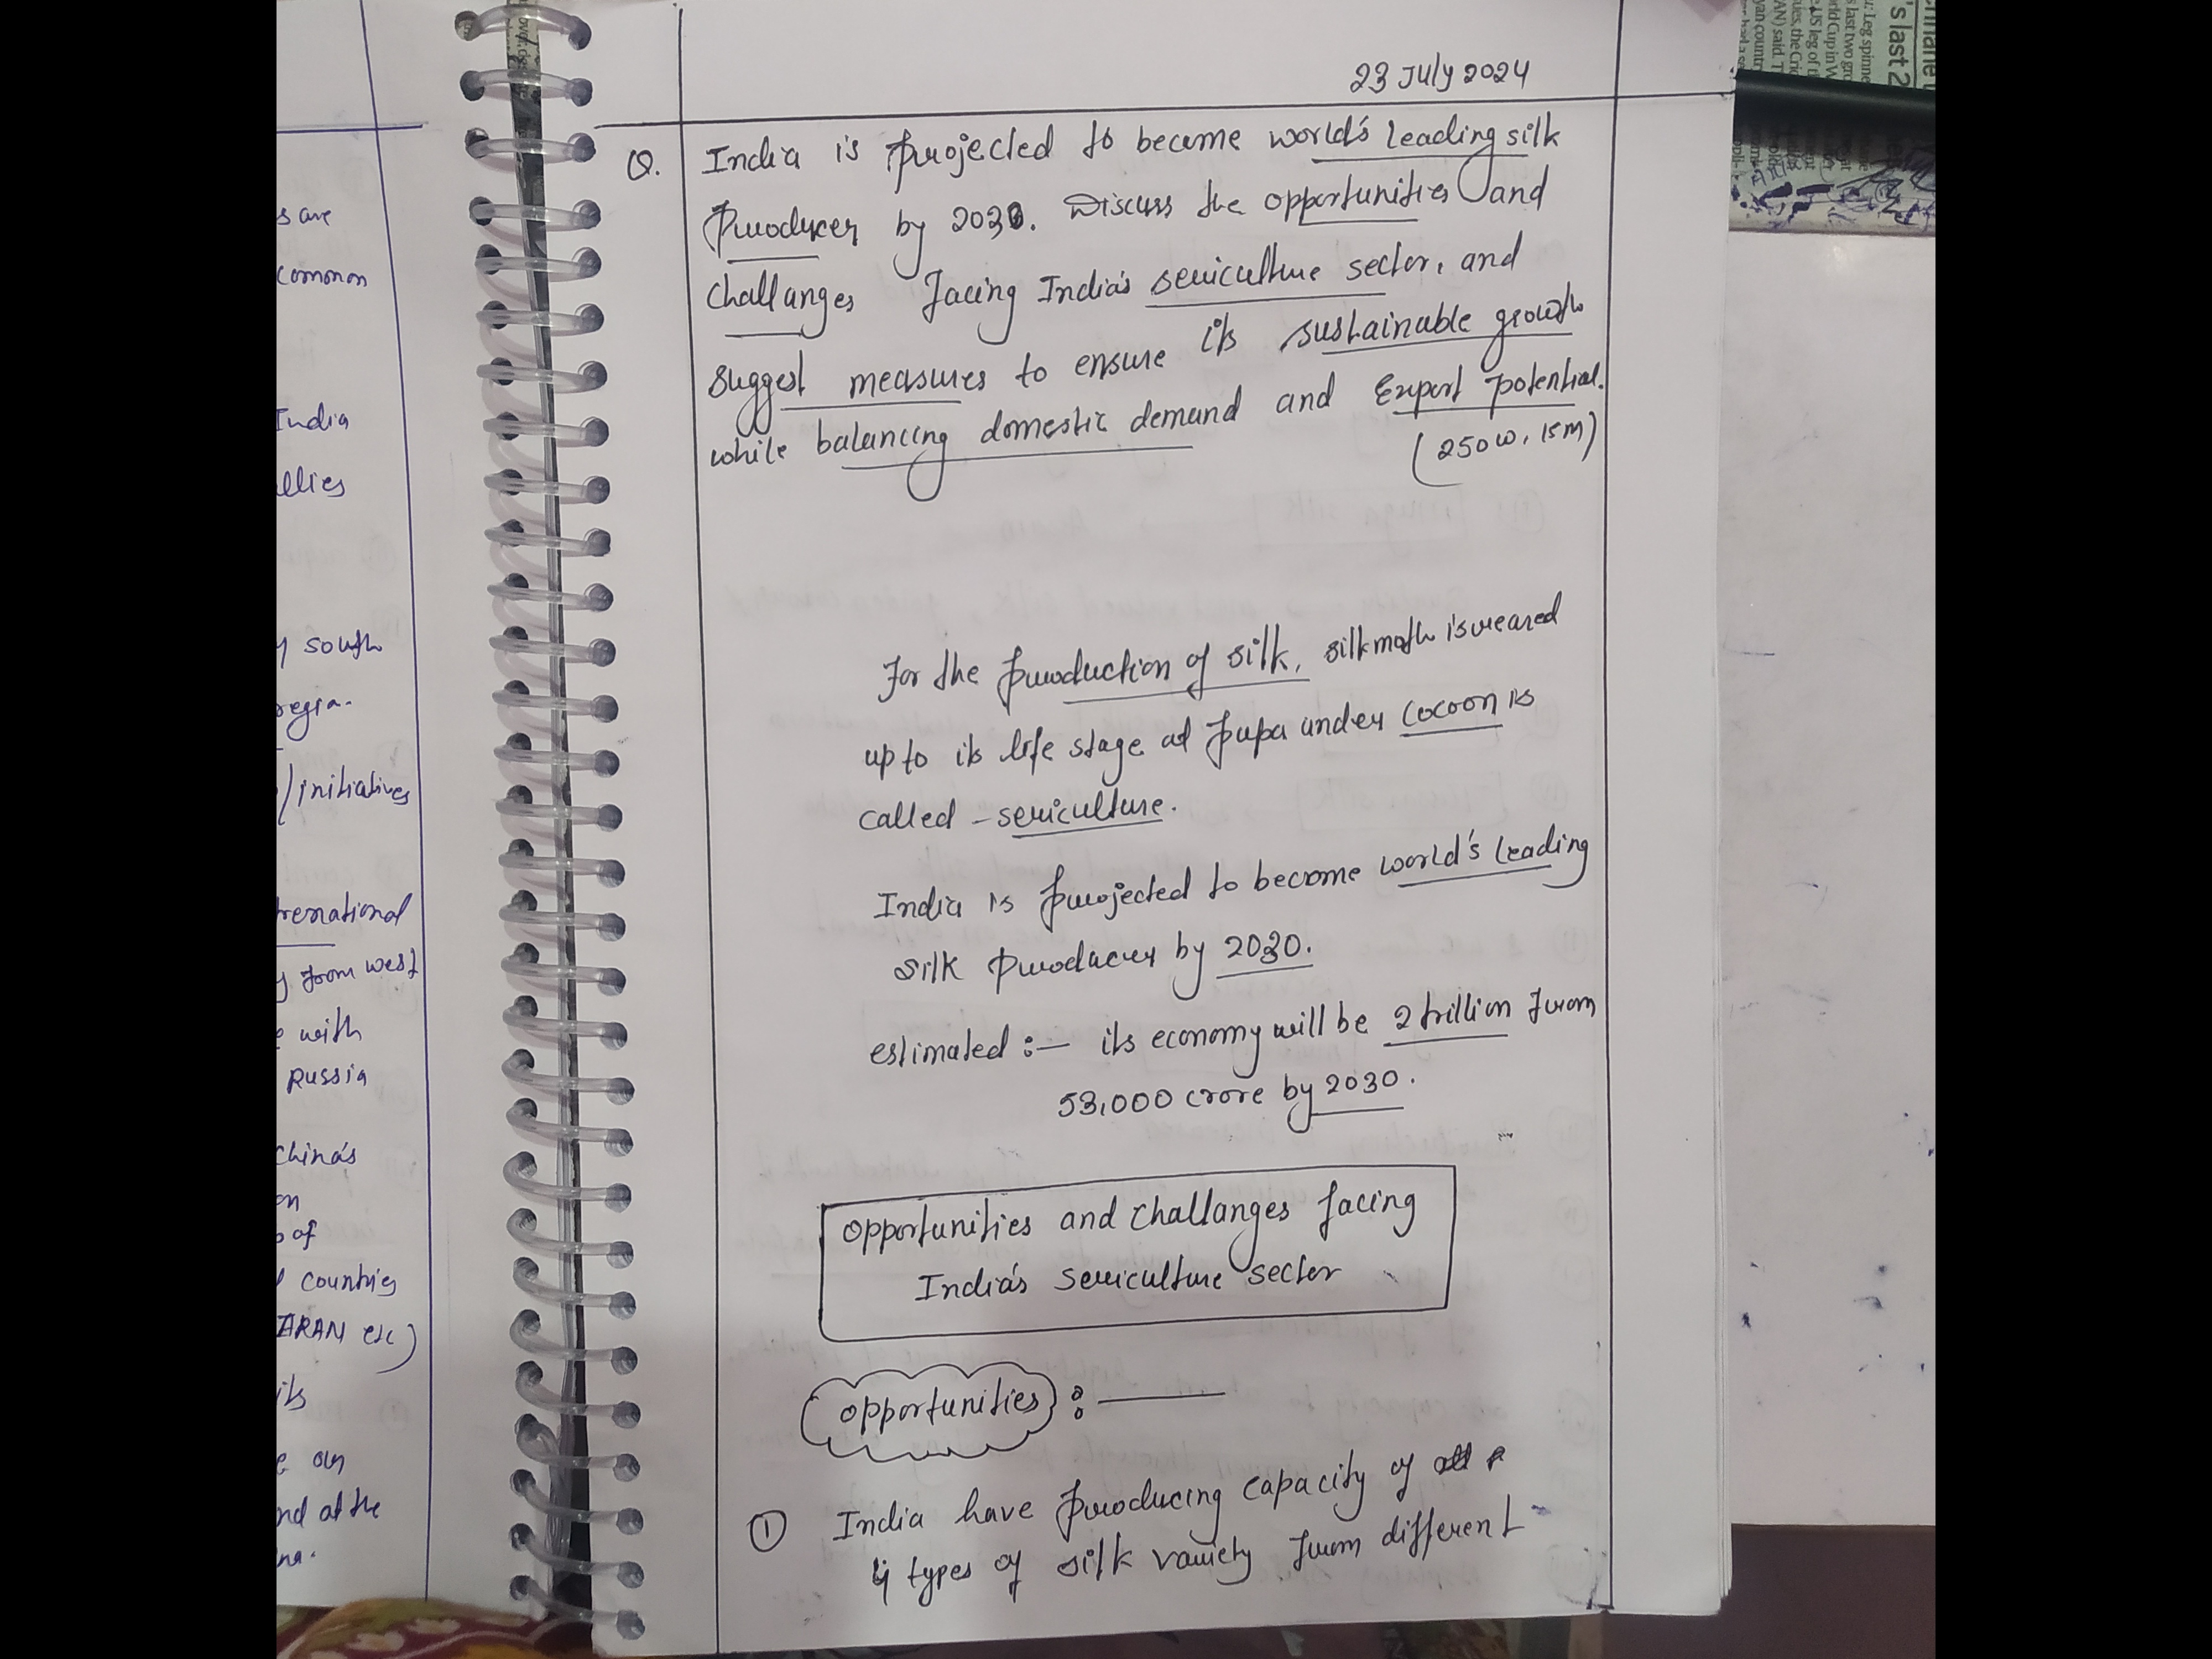 23 July 2024
Q. India is projected to become world's leading silk
Producer by 2030. Discuss the opportunities and
challanges facing India's sericulture sector, and
suggest measures to ensure its sustainable growth
while balancing domestic demand and Export potential.
(250 w, 15 M)
For the production of silk, silkmoth is reared
up to its life stage at pupa under cocoon is
called - sericulture.
India is projected to become world's leading
silk producer by 2030.
estimated :- its economy will be 2 trillion from
53,000 crore by 2030.
opportunities and challanges facing
India's sericulture sector
opportunities :-
① India have producing capacity of
4 types of silk variety from different
s are
common
India
allies
south
regia.
/initiatives
ternational
from west
with
Russia
China's
on
of
countries
ARAN etc)
its
nd at the
's last 2
: Leg spinne
last two gro
rld Cup in W
US leg of t
ues, the Cric
AN) said. T
yan countr